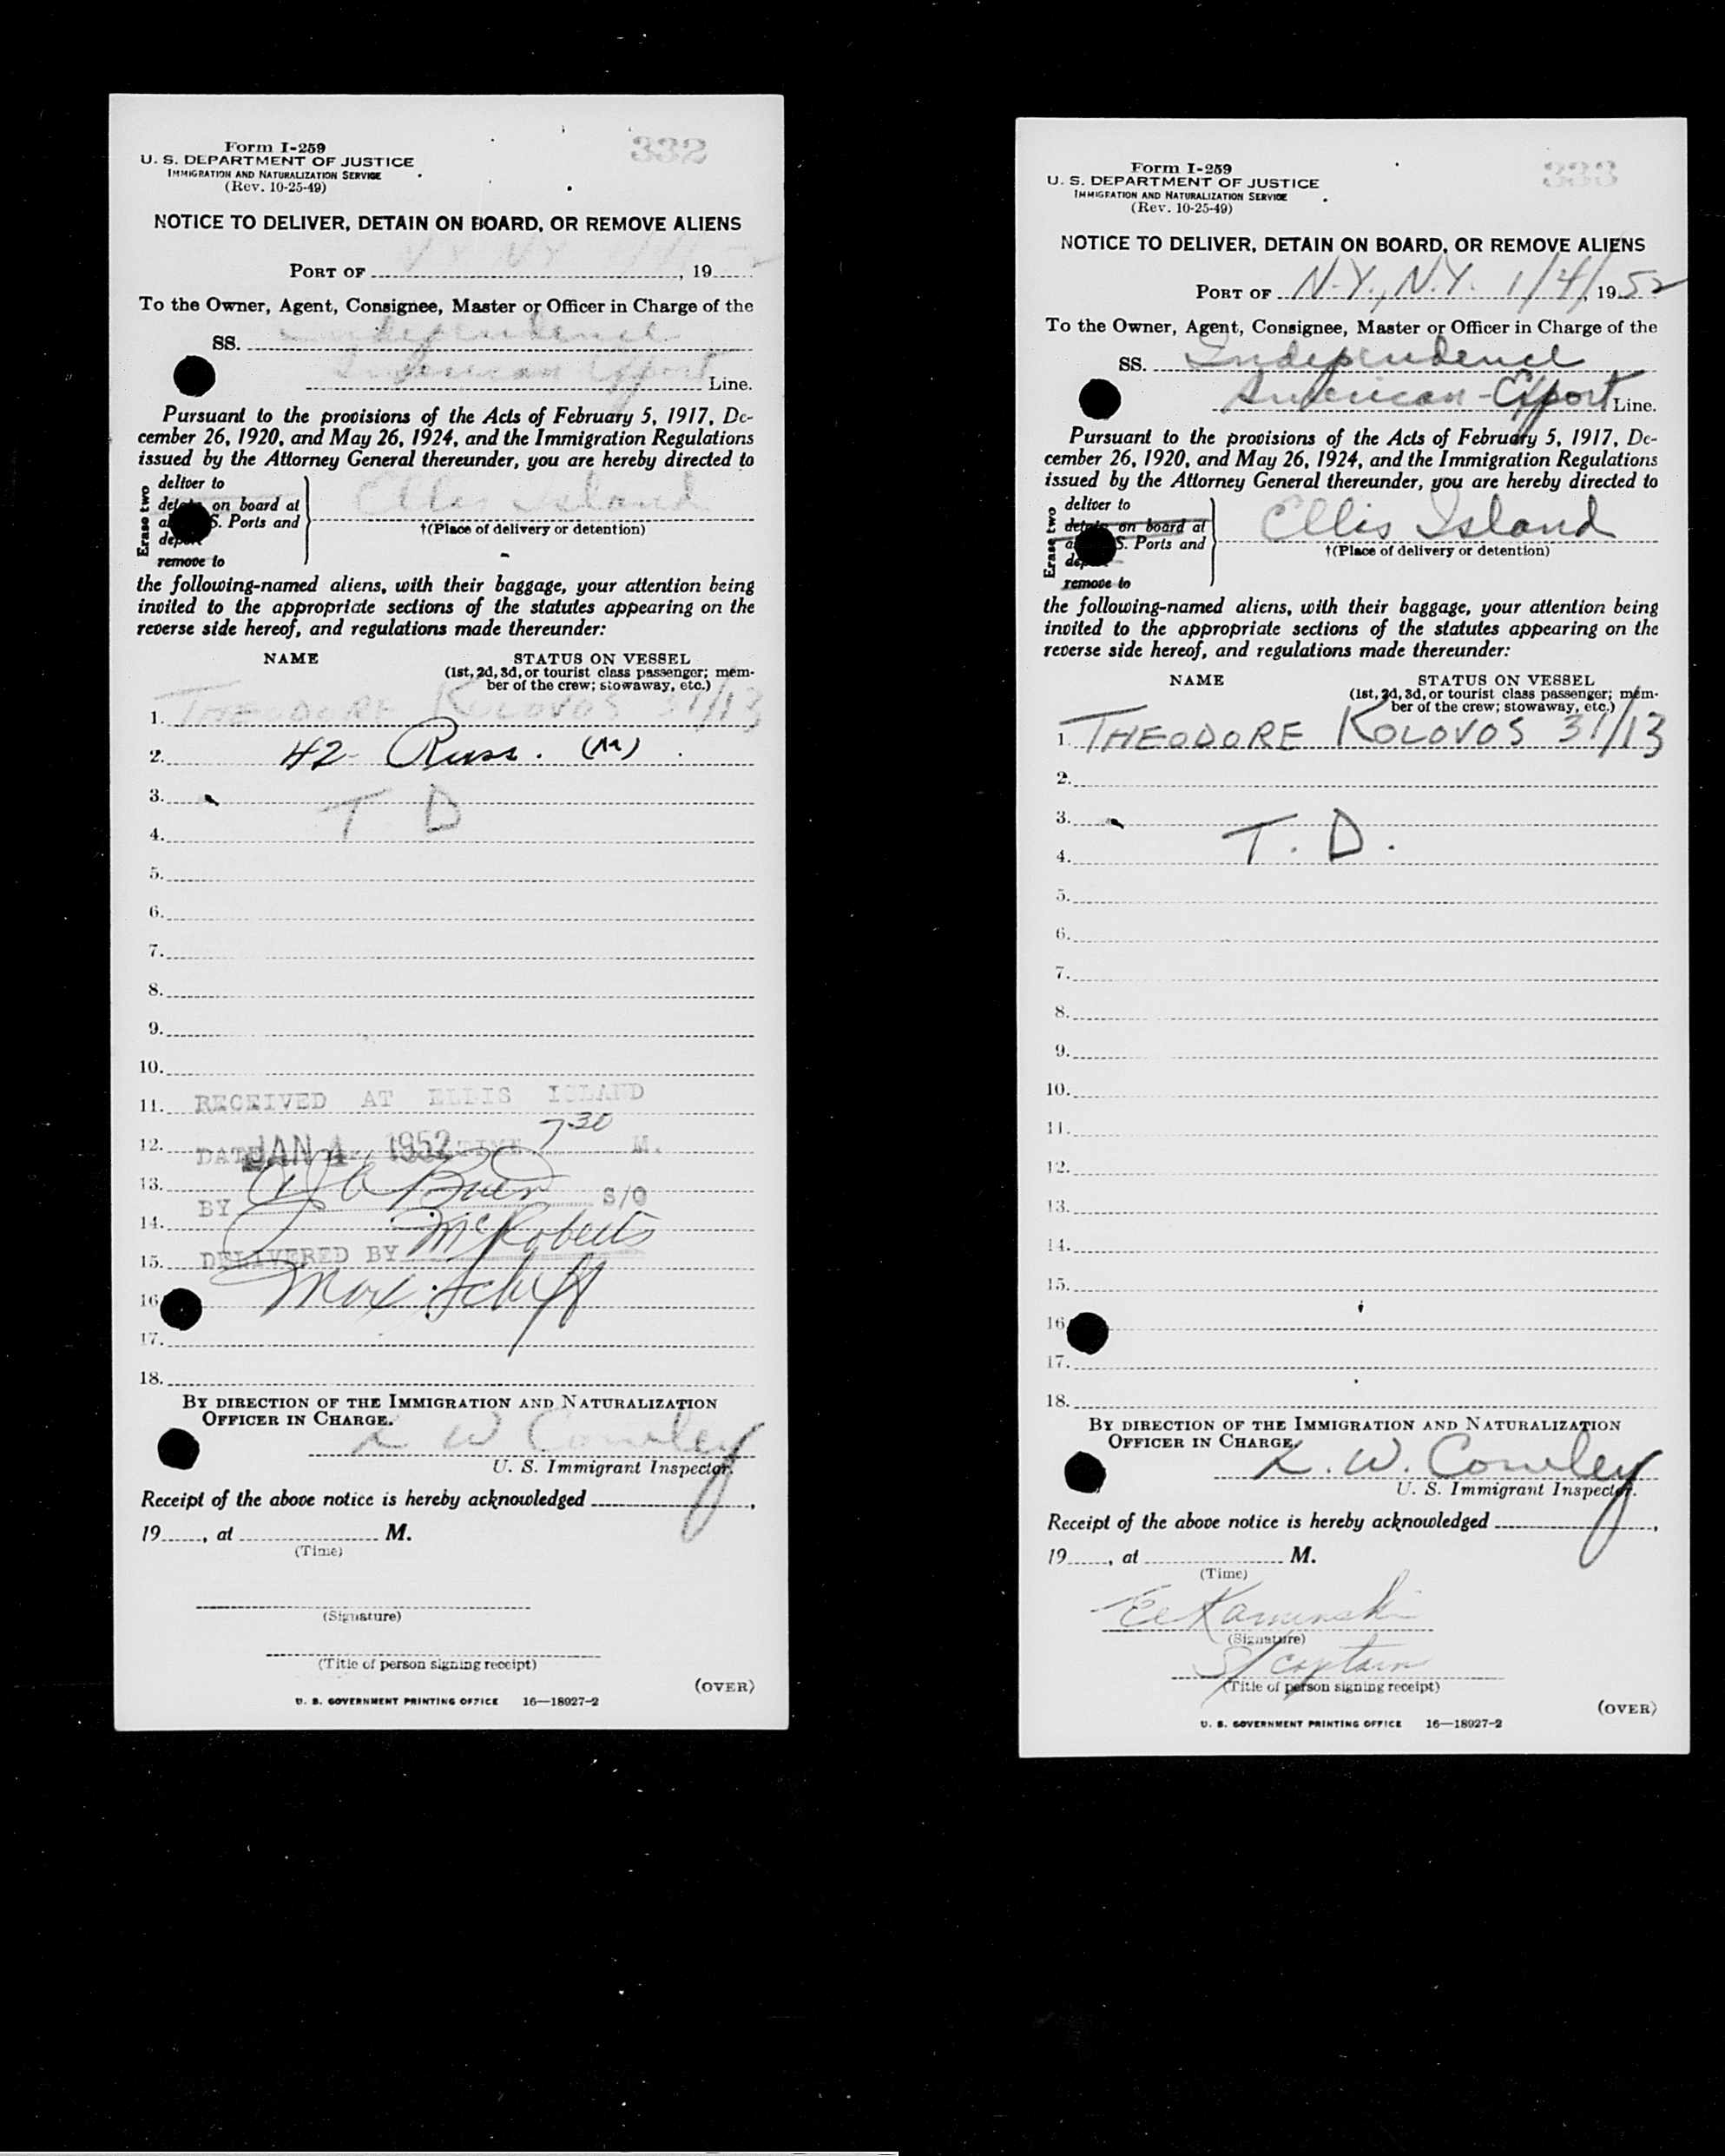 332
Form I-259
U. S. DEPARTMENT OF JUSTICE
IMMIGRATION AND NATURALIZATION SERVICE
(Rev. 10-25-49)
NOTICE TO DELIVER, DETAIN ON BOARD, OR REMOVE ALIENS
PORT OF N.Y., N.Y. 1/4/, 1952
To the Owner, Agent, Consignee, Master or Officer in Charge of the
SS. Independence
American Export Line.
Pursuant to the provisions of the Acts of February 5, 1917, De-
cember 26, 1920, and May 26, 1924, and the Immigration Regulations
issued by the Attorney General thereunder, you are hereby directed to
Erase two
deliver to
on board at
S. Ports and
remove to
Ellis Island
†(Place of delivery or detention)
the following-named aliens, with their baggage, your attention being
invited to the appropriate sections of the statutes appearing on the
reverse side hereof, and regulations made thereunder:
NAME STATUS ON VESSEL
(1st, 2d, 3d, or tourist class passenger; mem-
ber of the crew; stowaway, etc.)
1. THEODORE KOLOVOS 31/13
2. 42- Russ. (M)
3.
4. T D
5.
6.
7.
8.
9.
10.
11. RECEIVED AT ELLIS ISLAND
12. DATE JAN 4 1952 TIME 7:30 M.
13.
BY S/O
14. McRoberts
15. DELIVERED BY
16. Max Schiff
17.
18.
BY DIRECTION OF THE IMMIGRATION AND NATURALIZATION
OFFICER IN CHARGE.
L W Cowley
U. S. Immigrant Inspector.
Receipt of the above notice is hereby acknowledged ,
19 , at M.
(Time)
(Signature)
(Title of person signing receipt)
(OVER)
U. S. GOVERNMENT PRINTING OFFICE 16—18027-2
333
Form I-259
U. S. DEPARTMENT OF JUSTICE
IMMIGRATION AND NATURALIZATION SERVICE
(Rev. 10-25-49)
NOTICE TO DELIVER, DETAIN ON BOARD, OR REMOVE ALIENS
PORT OF N.Y., N.Y. 1/4/, 1952
To the Owner, Agent, Consignee, Master or Officer in Charge of the
SS. Independence
American-Export Line.
Pursuant to the provisions of the Acts of February 5, 1917, De-
cember 26, 1920, and May 26, 1924, and the Immigration Regulations
issued by the Attorney General thereunder, you are hereby directed to
Erase two
deliver to
detain on board at
S. Ports and
remove to
Ellis Island
†(Place of delivery or detention)
the following-named aliens, with their baggage, your attention being
invited to the appropriate sections of the statutes appearing on the
reverse side hereof, and regulations made thereunder:
NAME STATUS ON VESSEL
(1st, 2d, 3d, or tourist class passenger; mem-
ber of the crew; stowaway, etc.)
1. THEODORE KOLOVOS 31/13
2.
3.
4. T. D.
5.
6.
7.
8.
9.
10.
11.
12.
13.
14.
15.
16.
17.
18.
BY DIRECTION OF THE IMMIGRATION AND NATURALIZATION
OFFICER IN CHARGE.
L. W. Cowley
U. S. Immigrant Inspector.
Receipt of the above notice is hereby acknowledged ,
19 , at M.
(Time)
Ed Kaminski
(Signature)
S/captain
(Title of person signing receipt)
(OVER)
U. S. GOVERNMENT PRINTING OFFICE 16—18027-2